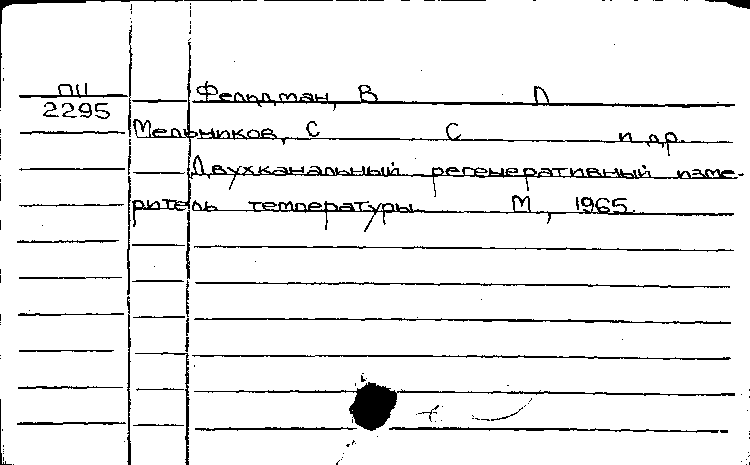 П11
2295
Фельдман, В П
Мельников, С С и др.
Двухканальный регенеративный изме-
ритель температуры М, 1965.